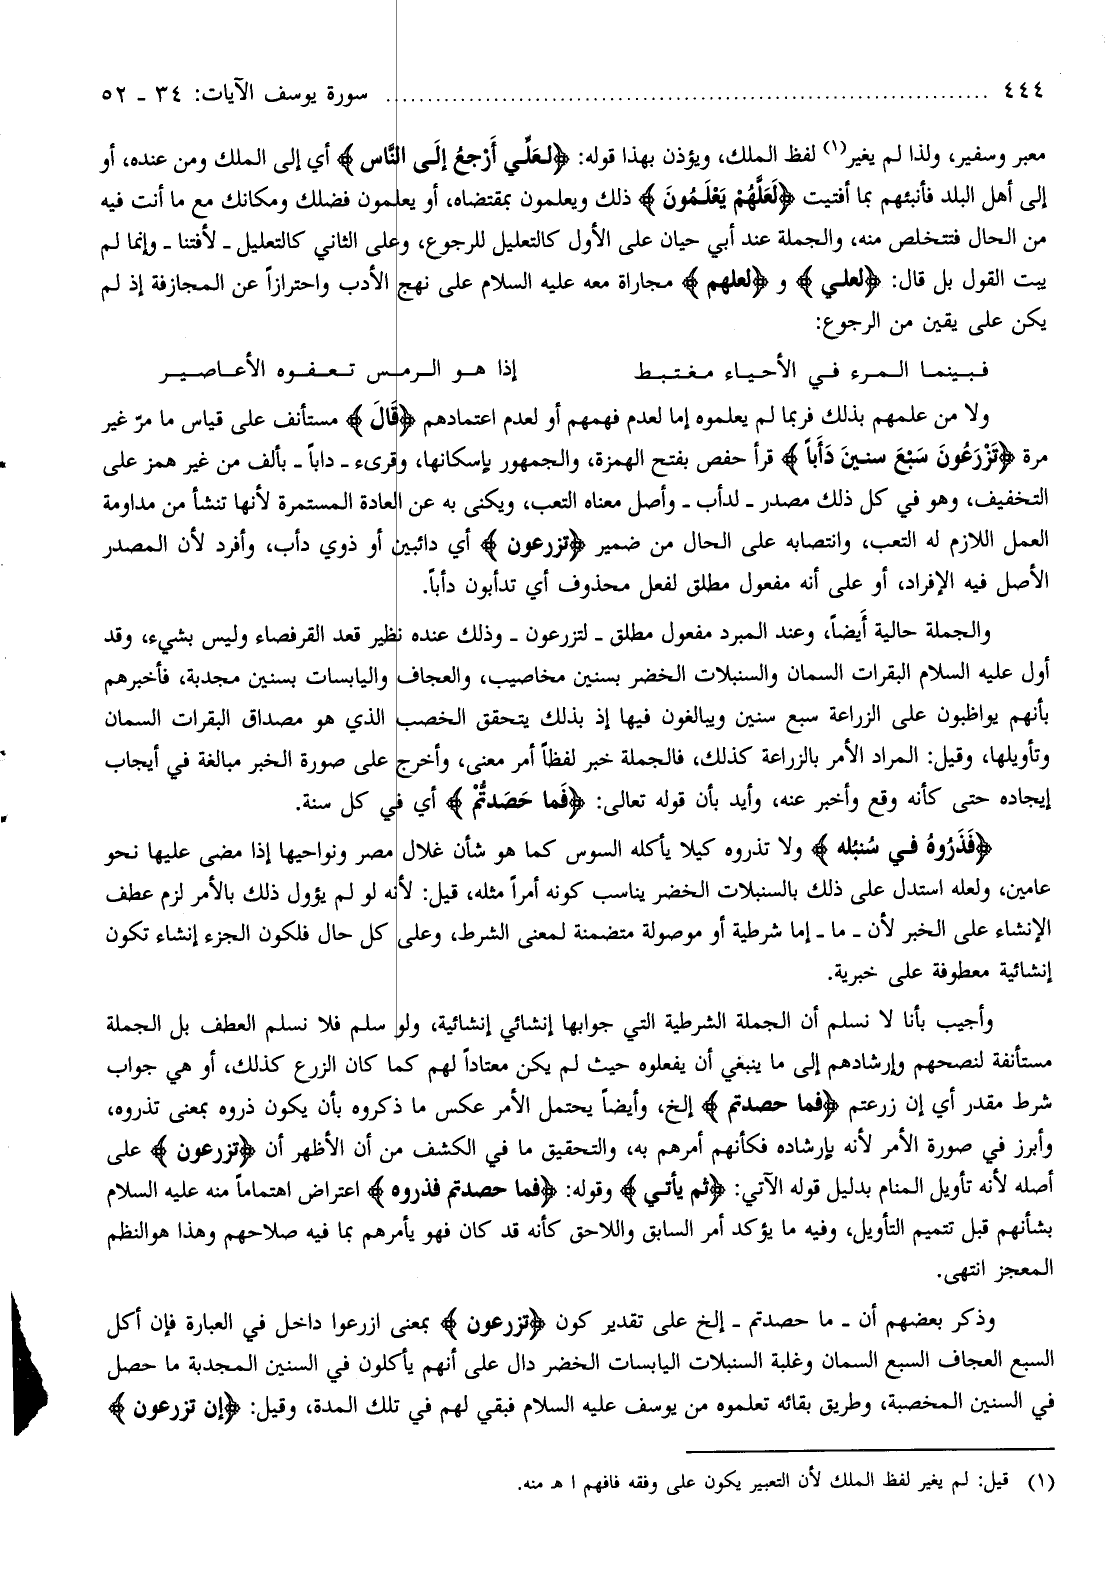 ٤٤٤ ........................................................ سورة يوسف الآيات: ٣٤ ـ ٥٢
معبر وسفير، ولذا لم يغير(١) لفظ الملك، ويؤذن بهذا قوله: ﴿لعَلِّي أَرْجعُ إلَى النَّاس﴾ أي إلى الملك ومن عنده، أو
إلى أهل البلد فأنبئهم بما أفتيت ﴿لَعَلَّهُمْ يَعْلَمُونَ﴾ ذلك ويعلمون بمقتضاه، أو يعلمون فضلك ومكانك مع ما أنت فيه
من الحال فتتخلص منه، والجملة عند أبي حيان على الأول كالتعليل للرجوع، وعلى الثاني كالتعليل ـ لأفتنا ـ وإنما لم
يبت القول بل قال: ﴿لعلي﴾ و ﴿لعلهم﴾ مجاراة معه عليه السلام على نهج الأدب واحترازاً عن المجازفة إذ لم
يكن على يقين من الرجوع:
فبينما المرء في الأحياء مغتبط إذا هو الرمس تعفوه الأعاصير
ولا من علمهم بذلك فربما لم يعلموه إما لعدم فهمهم أو لعدم اعتمادهم ﴿قَالَ﴾ مستأنف على قياس ما مرّ غير
مرة ﴿تَزْرَعُونَ سَبْعَ سنينَ دَأَباً﴾ قرأ حفص بفتح الهمزة، والجمهور بإسكانها، وقرىء ـ داباً ـ بألف من غير همز على
التخفيف، وهو في كل ذلك مصدر ـ لدأب ـ وأصل معناه التعب، ويكنى به عن العادة المستمرة لأنها تنشأ من مداومة
العمل اللازم له التعب، وانتصابه على الحال من ضمير ﴿تزرعون﴾ أي دائبين أو ذوي دأب، وأفرد لأن المصدر
الأصل فيه الإفراد، أو على أنه مفعول مطلق لفعل محذوف أي تدأبون دأباً.
والجملة حالية أَيضاً، وعند المبرد مفعول مطلق ـ لتزرعون ـ وذلك عنده نظير قعد القرفصاء وليس بشيء، وقد
أول عليه السلام البقرات السمان والسنبلات الخضر بسنين مخاصيب، والعجاف واليابسات بسنين مجدبة، فأخبرهم
بأنهم يواظبون على الزراعة سبع سنين ويبالغون فيها إذ بذلك يتحقق الخصب الذي هو مصداق البقرات السمان
وتأويلها، وقيل: المراد الأمر بالزراعة كذلك، فالجملة خبر لفظاً أمر معنى، وأخرج على صورة الخبر مبالغة في أيجاب
إيجاده حتى كأنه وقع وأخبر عنه، وأيد بأن قوله تعالى: ﴿فَما حَصَدتُّمْ﴾ أي في كل سنة.
﴿فَذَرُوهُ في سُنبُله﴾ ولا تذروه كيلا يأكله السوس كما هو شأن غلال مصر ونواحيها إذا مضى عليها نحو
عامين، ولعله استدل على ذلك بالسنبلات الخضر يناسب كونه أمراً مثله، قيل: لأنه لو لم يؤول ذلك بالأمر لزم عطف
الإنشاء على الخبر لأن ـ ما ـ إما شرطية أو موصولة متضمنة لمعنى الشرط، وعلى كل حال فلكون الجزء إنشاء تكون
إنشائية معطوفة على خبرية.
وأجيب بأنا لا نسلم أن الجملة الشرطية التي جوابها إنشائي إنشائية، ولو سلم فلا نسلم العطف بل الجملة
مستأنفة لنصحهم وإرشادهم إلى ما ينبغي أن يفعلوه حيث لم يكن معتاداً لهم كما كان الزرع كذلك، أو هي جواب
شرط مقدر أي إن زرعتم ﴿فما حصدتم﴾ إلخ، وأيضاً يحتمل الأمر عكس ما ذكروه بأن يكون ذروه بمعنى تذروه،
وأبرز في صورة الأمر لأنه بإرشاده فكأنهم أمرهم به، والتحقيق ما في الكشف من أن الأظهر أن ﴿تزرعون﴾ على
أصله لأنه تأويل المنام بدليل قوله الآتي: ﴿ثم يأتي﴾ وقوله: ﴿فما حصدتم فذروه﴾ اعتراض اهتماماً منه عليه السلام
بشأنهم قبل تتميم التأويل، وفيه ما يؤكد أمر السابق واللاحق كأنه قد كان فهو يأمرهم بما فيه صلاحهم وهذا هوالنظم
المعجز انتهى.
وذكر بعضهم أن ـ ما حصدتم ـ إلخ على تقدير كون ﴿تزرعون﴾ بمعنى ازرعوا داخل في العبارة فإن أكل
السبع العجاف السبع السمان وغلبة السنبلات اليابسات الخضر دال على أنهم يأكلون في السنين المجدبة ما حصل
في السنين المخصبة، وطريق بقائه تعلموه من يوسف عليه السلام فبقي لهم في تلك المدة، وقيل: ﴿إن تزرعون﴾
(١) قيل: لم يغير لفظ الملك لأن التعبير يكون على وفقه فافهم ا هـ منه.